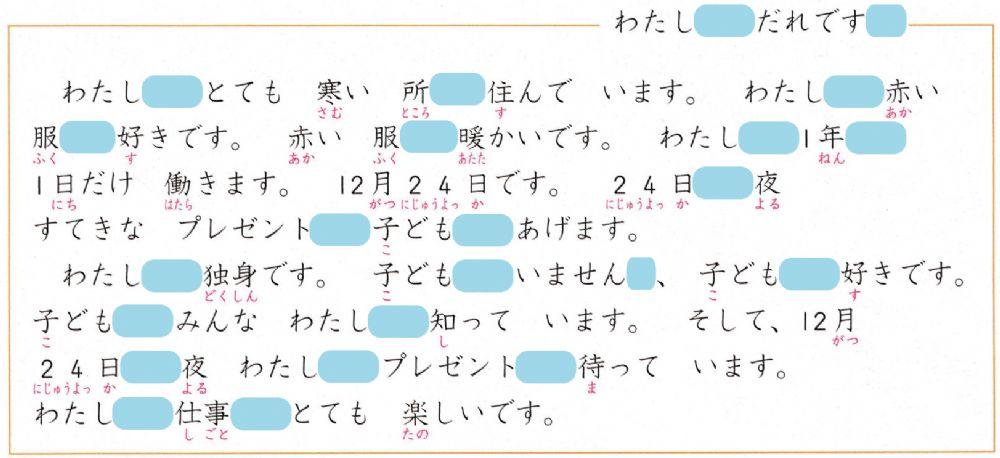 わたし だれです
わたし とても 寒い 所 住んで います。 わたし 赤い
さむ ところ す あか
服 好きです。 赤い 服 暖かいです。 わたし 1年
ふく す あか ふく あたた ねん
1日だけ 働きます。 12月24日です。 24日 夜
にち はたら がつ にじゅうよっ か にじゅうよっ か よる
すてきな プレゼント 子ども あげます。
こ
わたし 独身です。 子ども いません 、 子ども 好きです。
どくしん こ こ す
子ども みんな わたし 知って います。 そして、12月
こ し がつ
24日 夜 わたし プレゼント 待って います。
にじゅうよっ か よる ま
わたし 仕事 とても 楽しいです。
し ごと たの